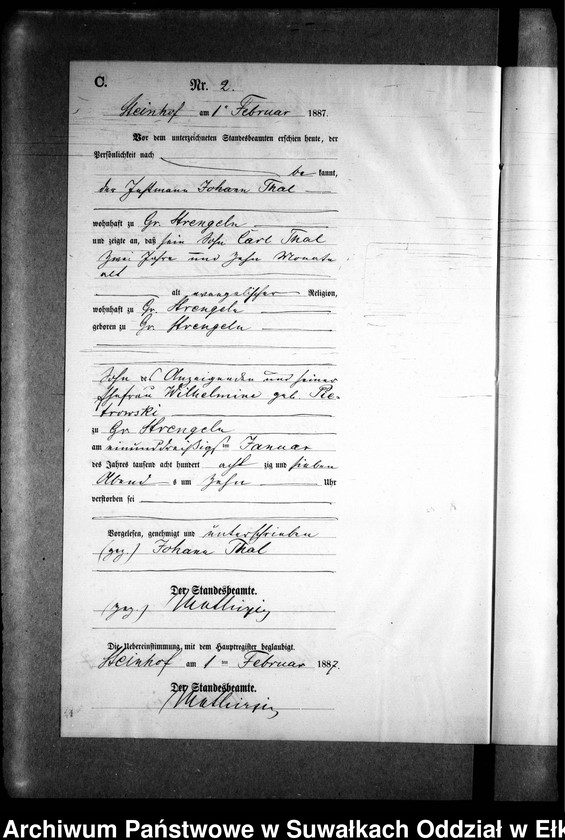 C.
Nr. 2.
Steinhof am 1ᵗ Februar 1887.
Vor dem unterzeichneten Standesbeamten erschien heute, der
Persönlichkeit nach
be kannt,
der Instmann Johann Thal
wohnhaft zu Gr. Strengeln
und zeigte an, daß sein Sohn Carl Thal
zwei Jahre und zehn Monate
alt
alt evangelischer Religion,
wohnhaft zu Gr. Strengeln
geboren zu Gr. Strengeln
Sohn des Anzeigenden und seiner
Ehefrau Wilhelmine geb Pie-
trowski
zu Gr Strengeln
am einunddreißigsten Januar
des Jahres tausend acht hundert acht zig und sieben
Abend s um zehn Uhr
verstorben sei
Vorgelesen, genehmigt und unterschrieben
(gez) Johann Thal
Der Standesbeamte.
(gez.)
Die Uebereinstimmung mit dem Hauptregister beglaubigt.
Steinhof am 1 ten Februar 1887.
Der Standesbeamte.
Archiwum Państwowe w Suwałkach Oddział w Ełk